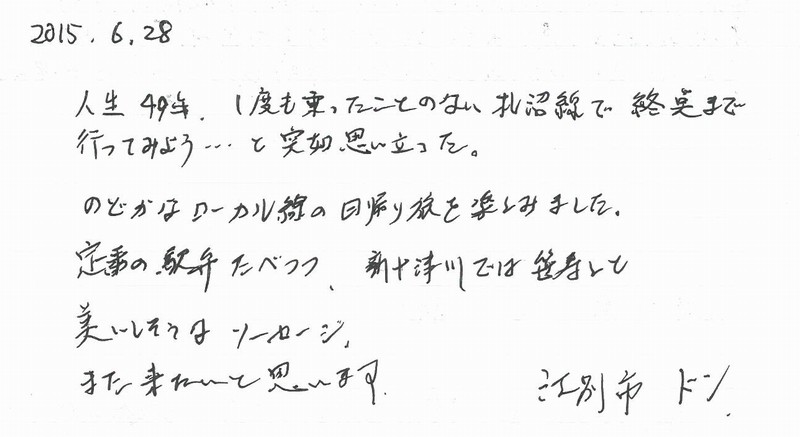 2015.6.28
人生49年、1度も乗ったことのない札沼線で終点まで
行ってみよう…と突如思い立った。
のどかなローカル線の日帰り旅を楽しみました。
定番の駅弁たべつつ、新十津川では笹寿しと
美いしそうなソーセージ、
また来たいと思います。
江別市 ドン